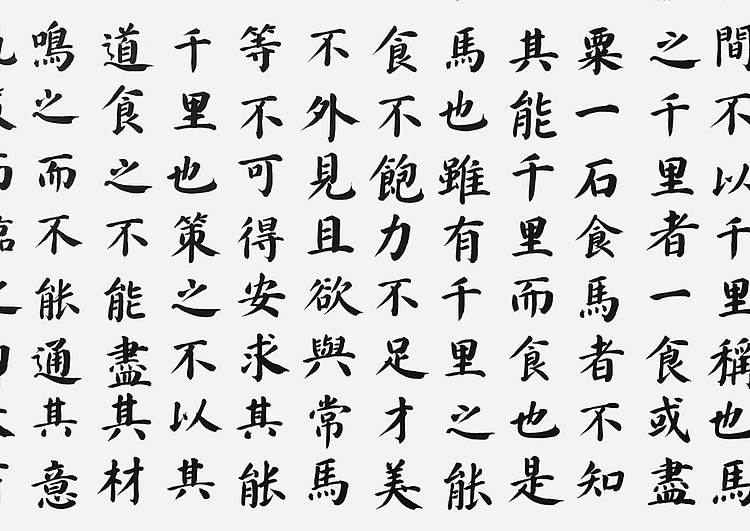 間不以千里稱也馬
之千里者一食或盡
粟一石食馬者不知
其能千里而食也是
馬也雖有千里之能
食不飽力不足才美
不外見且欲與常馬
等不可得安求其能
千里也策之不以其
道食之不能盡其材
鳴之而不能通其意